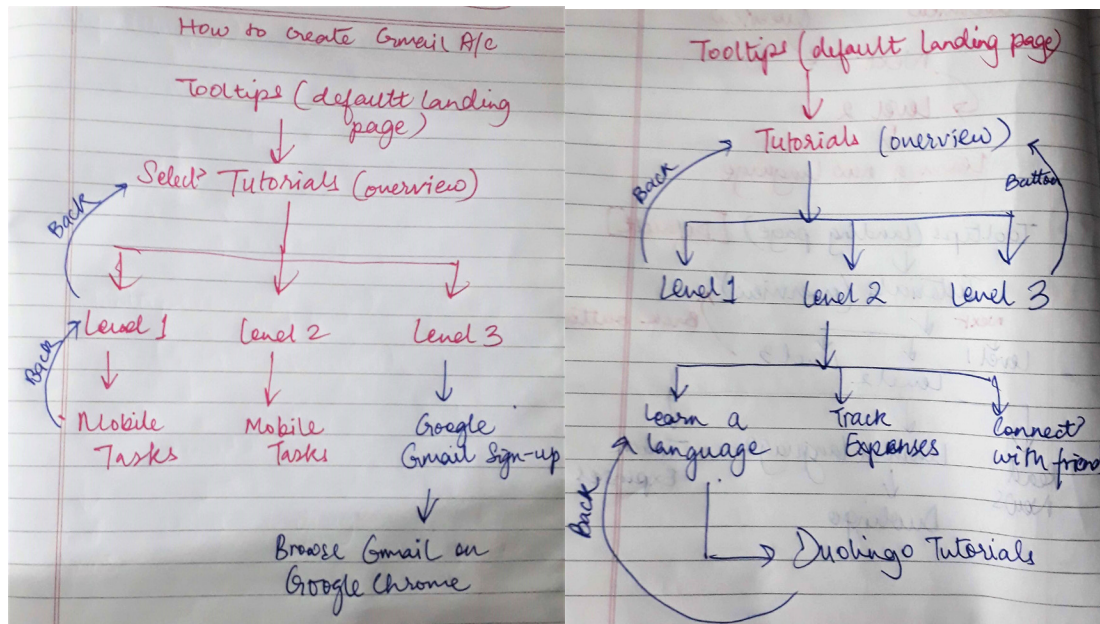 How to create Gmail A/c
Tooltips (defaultt landing
page)
Select Tutorials (overview)
Back
Level 1 Level 2 Level 3
Back
Mobile Mobile Google
Tasks Tasks Gmail Sign-up
Browse Gmail on
Google Chrome
Tooltips (default landing page)
Tutorials (overview)
Back Button
Level 1 Level 2 Level 3
Learn a Track Connect
language Expenses with friend
Back
Duolingo Tutorials